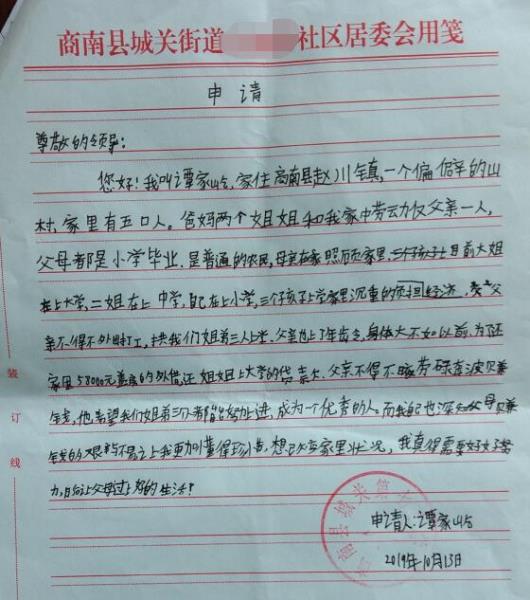 商南县城关街道 社区居委会用笺
申请
尊敬的领导：
您好！我叫谭家屹，家住商南县赵川镇，一个偏僻的山
村，家里有五口人。爸妈两个姐姐和我家中劳动力仅父亲一人，
父母都是小学毕业，是普通的农民，母亲在家照顾家里，三个孩子上目前大姐
在上大学，二姐在上中学，自己在上小学，三个孩子上学家里沉重的 经济，父
亲不得不外出打工，供我们姐弟三人上学，父亲也上了年龄，身体大不如以前，为了还
家里58000元盖房的外借，还姐姐上大学的贷款，父亲不得不 劳 奔波 
钱，他希望我们姐弟三个都能够努力上进，成为一个优秀的人。而我自己也深知父母
钱的艰辛与不易让我更加懂得珍惜，想改变家里状况，我真得需要好好努
力，日后让父母过上好的生活！
申请人：谭家屹
2019年10月13日
装
订
线
商南县城关